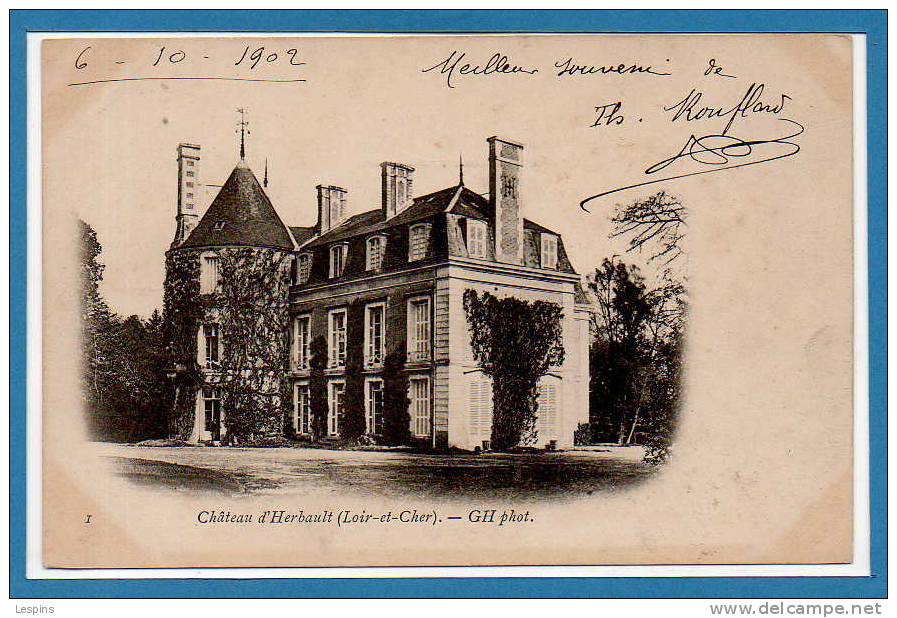 6 - 10 - 1902
Meilleur souvenir de
Th. Rouflard
1
Château d'Herbault (Loir-et-Cher). — GH phot.
Lespins
www.delcampe.net